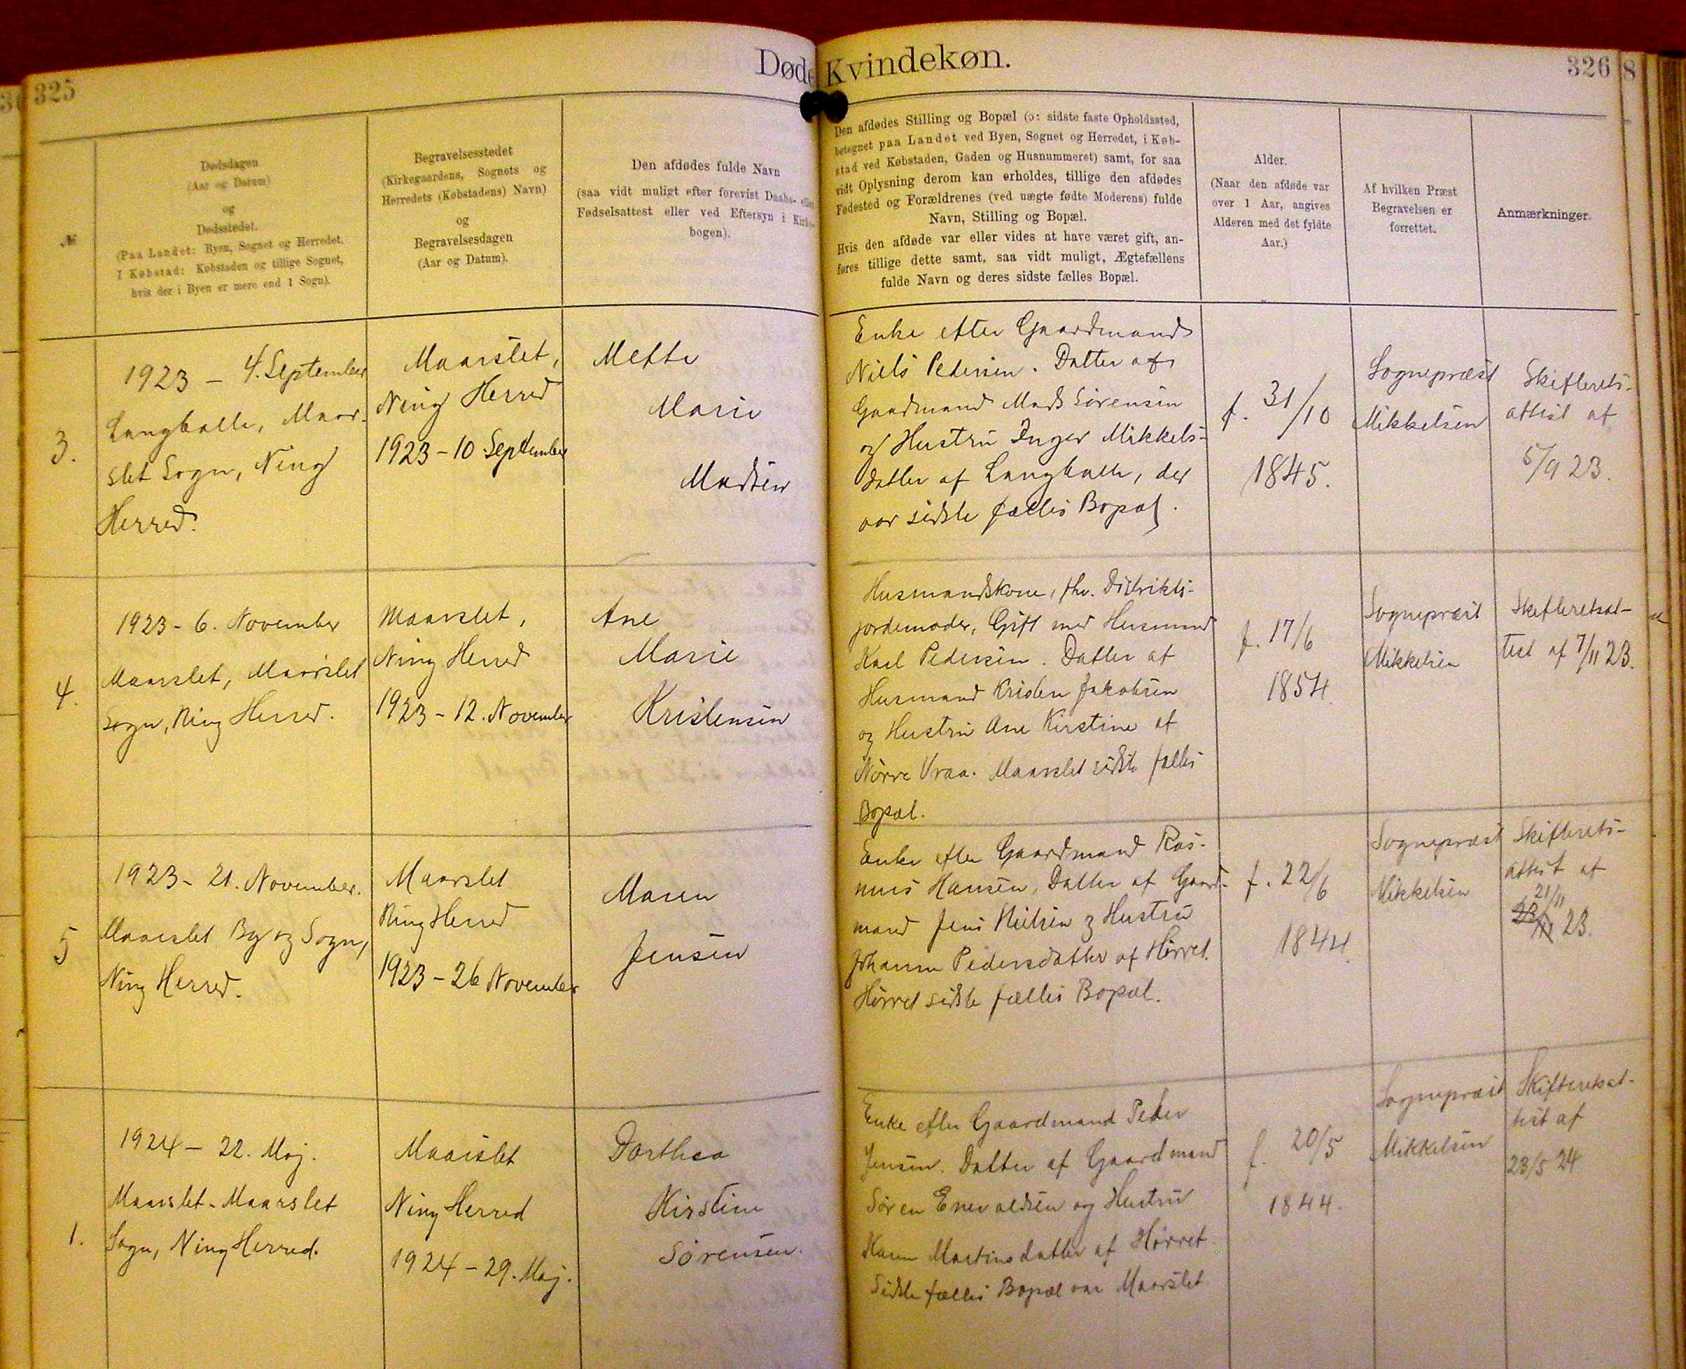 325
Døde Kvindekøn.
326
8
№
Dødsdagen
(Aar og Datum)
og
Dødsstedet.
(Paa Landet: Byen, Sognet og Herredet.
I Købstad: Købstaden og tillige Sognet,
hvis der i Byen er mere end 1 Sogn).
Begravelsesstedet
(Kirkegaardens, Sognets og
Herredets (Købstadens) Navn)
og
Begravelsesdagen
(Aar og Datum).
Den afdødes fulde Navn
(saa vidt muligt efter forevist Daabs- eller
Fødselsattest eller ved Eftersyn i Kirke-
bogen).
Den afdødes Stilling og Bopæl (ɔ: sidste faste Opholdssted,
betegnet paa Landet ved Byen, Sognet og Herredet, i Køb-
stad ved Købstaden, Gaden og Husnummeret) samt, for saa
vidt Oplysning derom kan erholdes, tillige den afdødes
Fødested og Forældrenes (ved uægte fødte Moderens) fulde
Navn, Stilling og Bopæl.
Hvis den afdøde var eller vides at have været gift, an-
føres tillige dette samt, saa vidt muligt, Ægtefællens
fulde Navn og deres sidste fælles Bopæl.
Alder.
(Naar den afdøde var
over 1 Aar, angives
Alderen med det fyldte
Aar.)
Af hvilken Præst
Begravelsen er
forrettet.
Anmærkninger.
3.
1923 – 4. September
Langballe, Maar-
slet Sogn, Ning
Herred.
Maarslet,
Ning Herred
1923 – 10 September
Mette
Marie
Madsen
Enke efter Gaardmand
Niels Pedersen. Datter af
Gaardmand Mads Sørensen
og Hustru Inger Mikkels-
datter af Langballe, der
var sidste fælles Bopæl.
f. 31/10
1845.
Sognepræst
Mikkelsen
Skifterets-
attest af
5/9 23.
4.
1923 – 6. November
Maarslet, Maarslet
Sogn, Ning Herred.
Maarslet,
Ning Herred
1923 – 12. November
Ane
Marie
Kristensen
Husmandskone, fhv. Distrikts-
jordemoder, Gift med Husmand
Karl Pedersen. Datter af
Husmand Kristen Jakobsen
og Hustru Ane Kirstine af
Nørre Vraa. Maarslet sidste fælles
Bopæl.
f. 17/6
1854.
Sognepræst
Mikkelsen
Skifteretsat-
test af 7/11 23.
5
1923 – 21. November.
Maarslet By og Sogn,
Ning Herred.
Maarslet
Ning Herred
1923 – 26 November
Maren
Jensen
Enke efter Gaardmand Ras-
mus Hansen, Datter af Gaard-
mand Jens Nielsen og Hustru
Johanne Pedersdatter af Hørret.
Hørret sidste fælles Bopæl.
f. 22/6
1844.
Sognepræst
Mikkelsen
Skifterets-
attest af
21/11
23.
1.
1924 – 22. Maj.
Maarslet – Maarslet
Sogn, Ning Herred.
Maarslet
Ning Herred
1924 – 29. Maj.
Dorthea
Kirstine
Sørensen.
Enke efter Gaardmand Peder
Jensen. Datter af Gaardmand
Søren Enevoldsen og Hustru
Karen Martinsdatter af Hørret.
Sidste fælles Bopæl var Maarslet
f. 20/5
1844.
Sognepræst
Mikkelsen
Skifteretsat-
test af
23/5 24